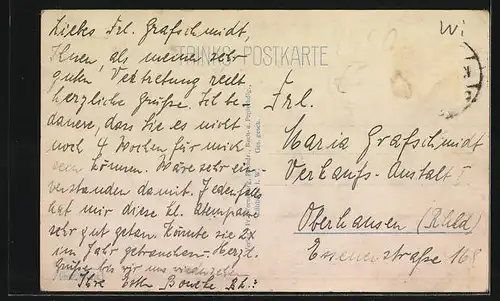 Liebes Frl. Grafschmidt,
Ihnen, als meiner sehr
guten Vertretung recht
herzliche Grüße. Ich be-
dauere, dass Sie es nicht
noch 4 Wochen für mich
sein können. Wäre sehr ein-
verstanden damit. Jedenfalls
hat mir diese kl. Atempause
sehr gut getan. Könnte sie 2x
im Jahr gebrauchen. Herzl.
Grüße bis wir uns wiedersehen
Ihre
TRINKS-POSTKARTE
Ges. gesch.
Wi
Frl.
Maria Grafschmidt
Verkaufs-Anstalt I
Oberhausen (Rhld)
Essenerstraße 168